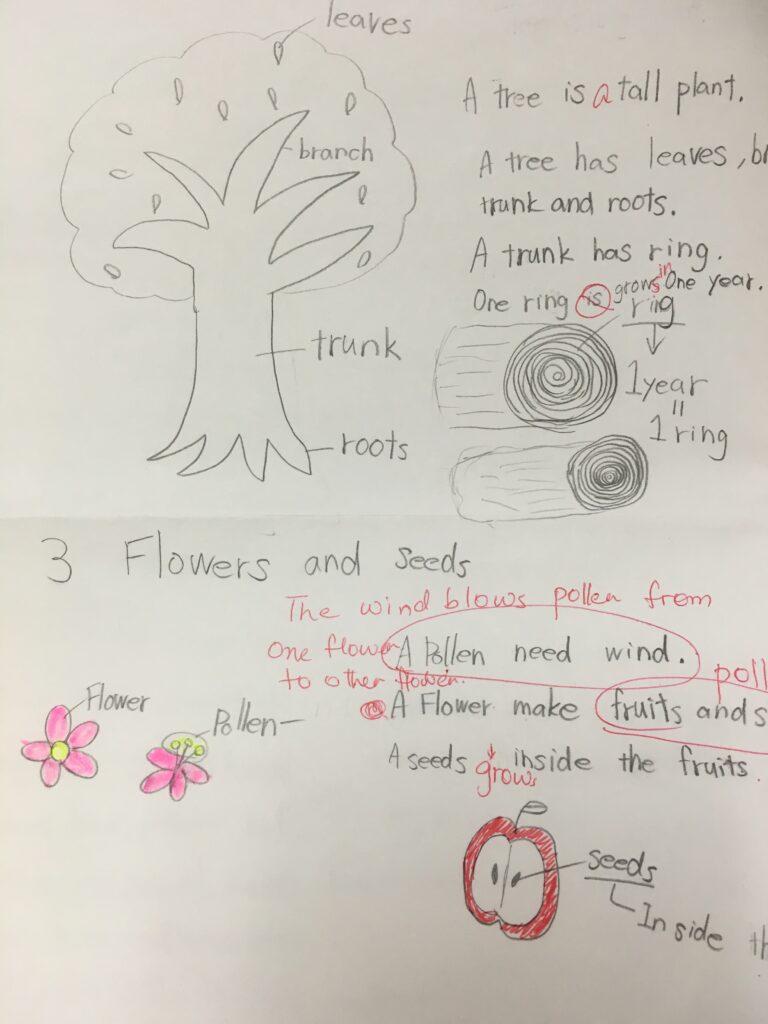 leaves
branch
trunk
roots
A tree is a tall plant.
A tree has leaves, br
trunk and roots.
A trunk has ring.
One ring is grows in One year.
ring
1 year
=
1 ring
3 Flowers and seeds
The wind blows pollen from
one flower
to other flower.
A Pollen need wind.
poll
A Flower make fruits and s
A seeds grows inside the fruits.
Flower
Pollen
seeds
Inside th